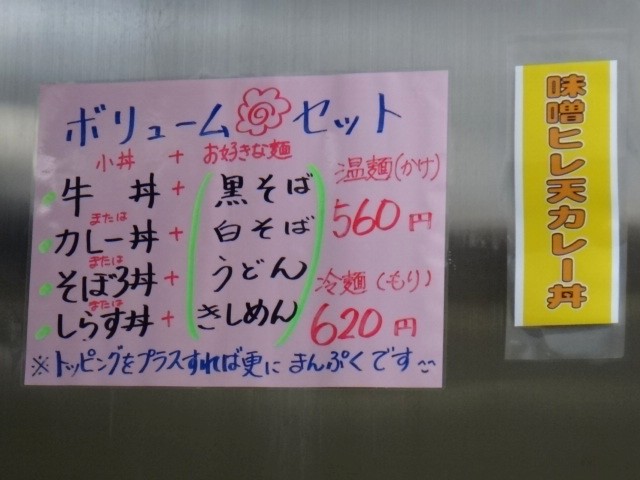 ボリューム セット
小丼 + お好きな麺
牛丼 + 黒そば
または
カレー丼 + 白そば
または
そぼろ丼 + うどん
または
しらす丼 + きしめん
温麺(かけ)
560円
冷麺(もり)
620円
※トッピングをプラスすれば更にまんぷくです
味噌ヒレ天カレー丼